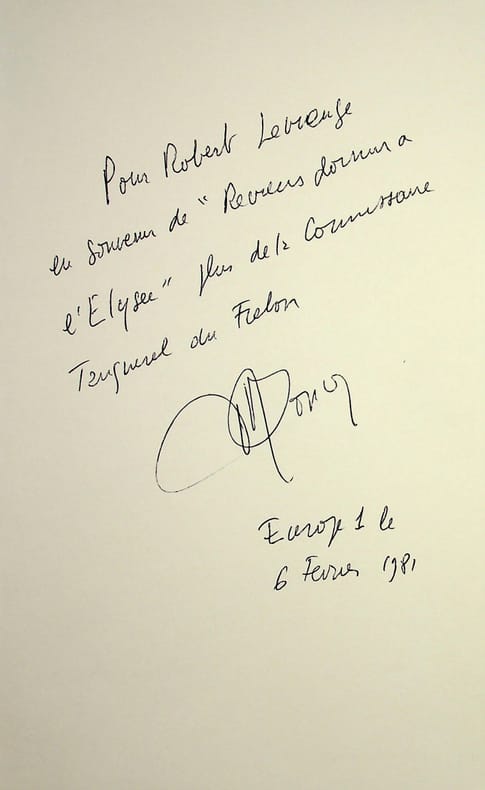 Pour Robert Lavrange
en souvenir de "Reviens dormir a
l'Elysée" plus de la Commissaire
Tanquerel du Frelon
Europe 1 le
6 Fevrier 1981